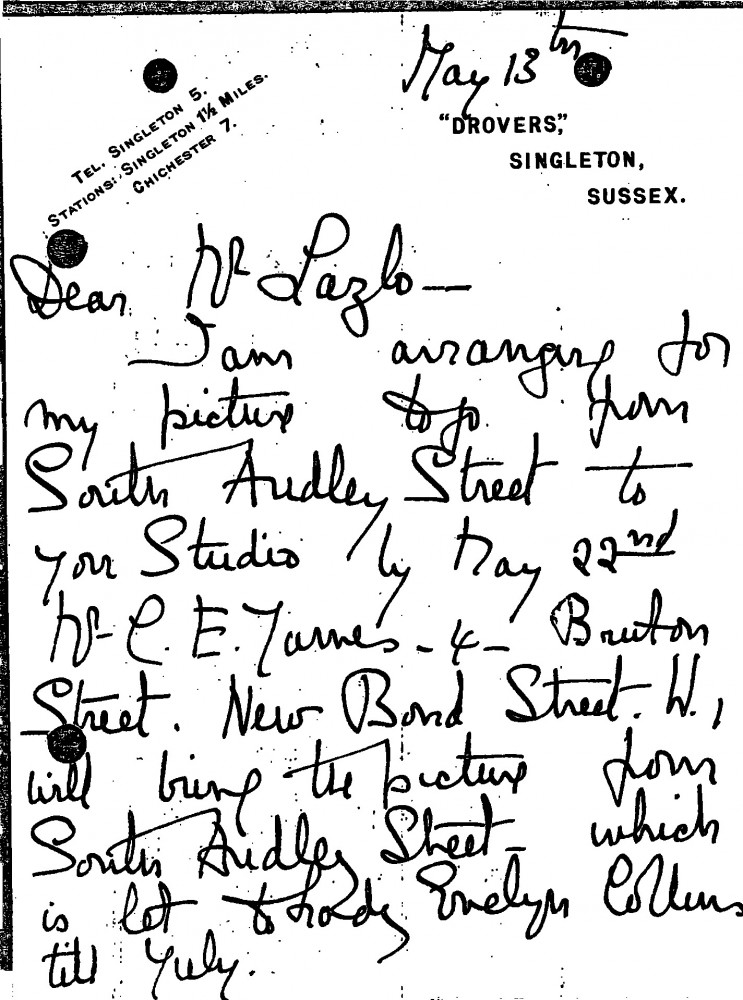 May 13th
TEL. SINGLETON 5.
STATIONS: SINGLETON 1½ MILES.
CHICHESTER 7.
"DROVERS,"
SINGLETON,
SUSSEX.
Dear Mr Lazlo—
I am arranging for
my picture to go from
South Audley Street to
your Studio by May 22nd
Mr C. E. Yarnes - 4 - Bruton
Street. New Bond Street. W.,
will bring the picture from
South Audley Street - which
is let to Lady Evelyn Collins
till July.